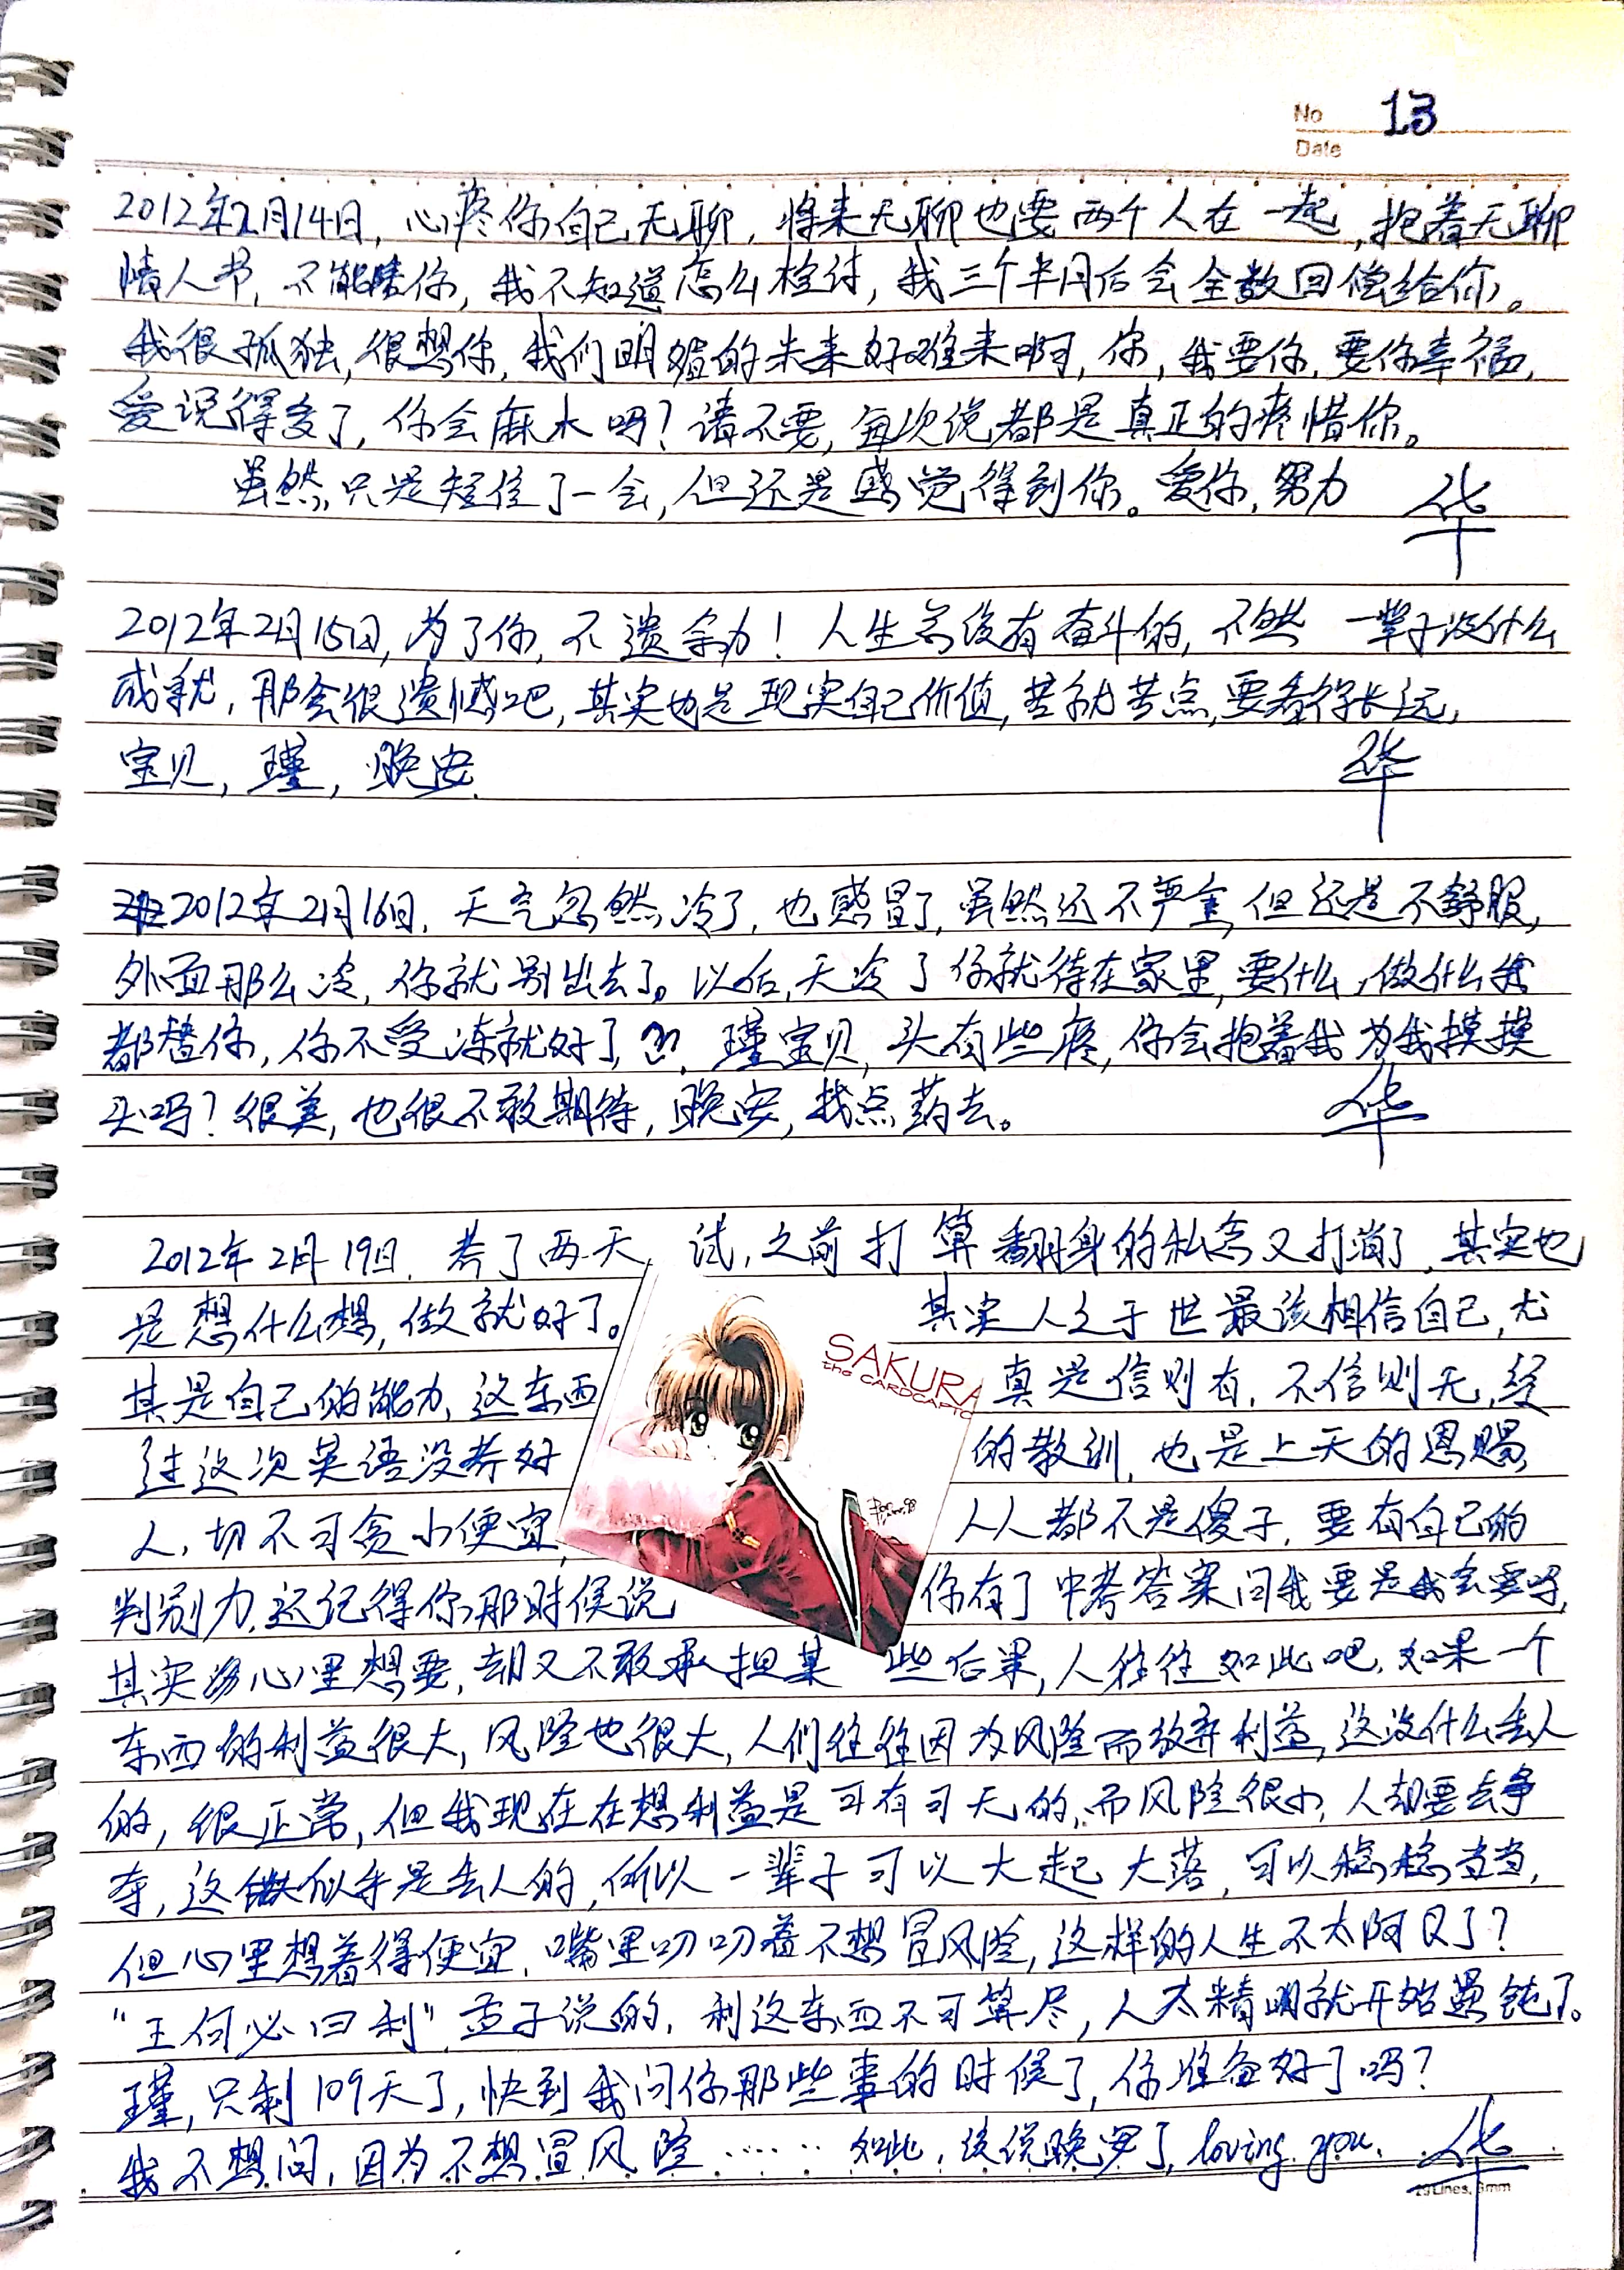 No 13
Date
2012年2月14日，心疼你自己无聊，将来无聊也要两个人在一起，抱着无聊
情人节，不能陪你，我不知道怎么检讨，我三个半月后会全数回偿给你。
我很孤独，很想你，我们明媚的未来好难来啊，你，我要你，要你幸福，
爱说得多了，你会麻木吗？请不要，每次说都是真正的疼惜你。
虽然只是短信了一会，但还是感觉得到你。爱你，努力 华
2012年2月15日，为了你，不遗余力！人生总该有奋斗的，不然一辈子没什么
成就，那会很遗憾吧，其实也是现实自己价值，苦就苦点，要看得长远，
宝贝，瑾，晚安. 华
2012年2月16日，天气忽然冷了，也感冒了，虽然还不严重，但还是不舒服，
外面那么冷，你就别出去了。以后，天冷了你就待在家里，要什么，做什么我
都替你，你不受冻就好了，瑾宝贝，头有些疼，你会抱着我为我摸摸
头吗？很美，也很不敢期待，晚安，找点药去。 华
2012年2月19日，考了两天试，之前打算翻身的私念又打消了，其实也
是想什么想，做就好了。其实人之于世最该相信自己，尤
其是自己的能力，这东西真是信则有，不信则无，经
过这次英语没考好的教训，也是上天的恩赐
人，切不可贪小便宜，人人都不是傻子，要有自己的
判别力，还记得你那时候说你有了中考答案问我要是我会要吗，
其实心里想要，却又不敢承担某些后果，人往往如此吧，如果一个
东西的利益很大，风险也很大，人们往往因为风险而放弃利益，这没什么丢人
的，很正常，但我现在在想利益是可有可无的，而风险很小，人却要去争
夺，这似乎是丢人的，所以一辈子可以大起大落，可以稳稳当当，
但心里想着得便宜，嘴里叨叨着不想冒风险，这样的人生不太阿Q了？
“王何必曰利”孟子说的，利这东西不可算尽，人太精明就开始愚钝了。
瑾，只剩109天了，快到我问你那些事的时候了，你准备好了吗？
我不想问，因为不想冒风险……如此，该说晚安了，loving you. 华
SAKURA
the CARDCAPTO
23Lines, 8mm